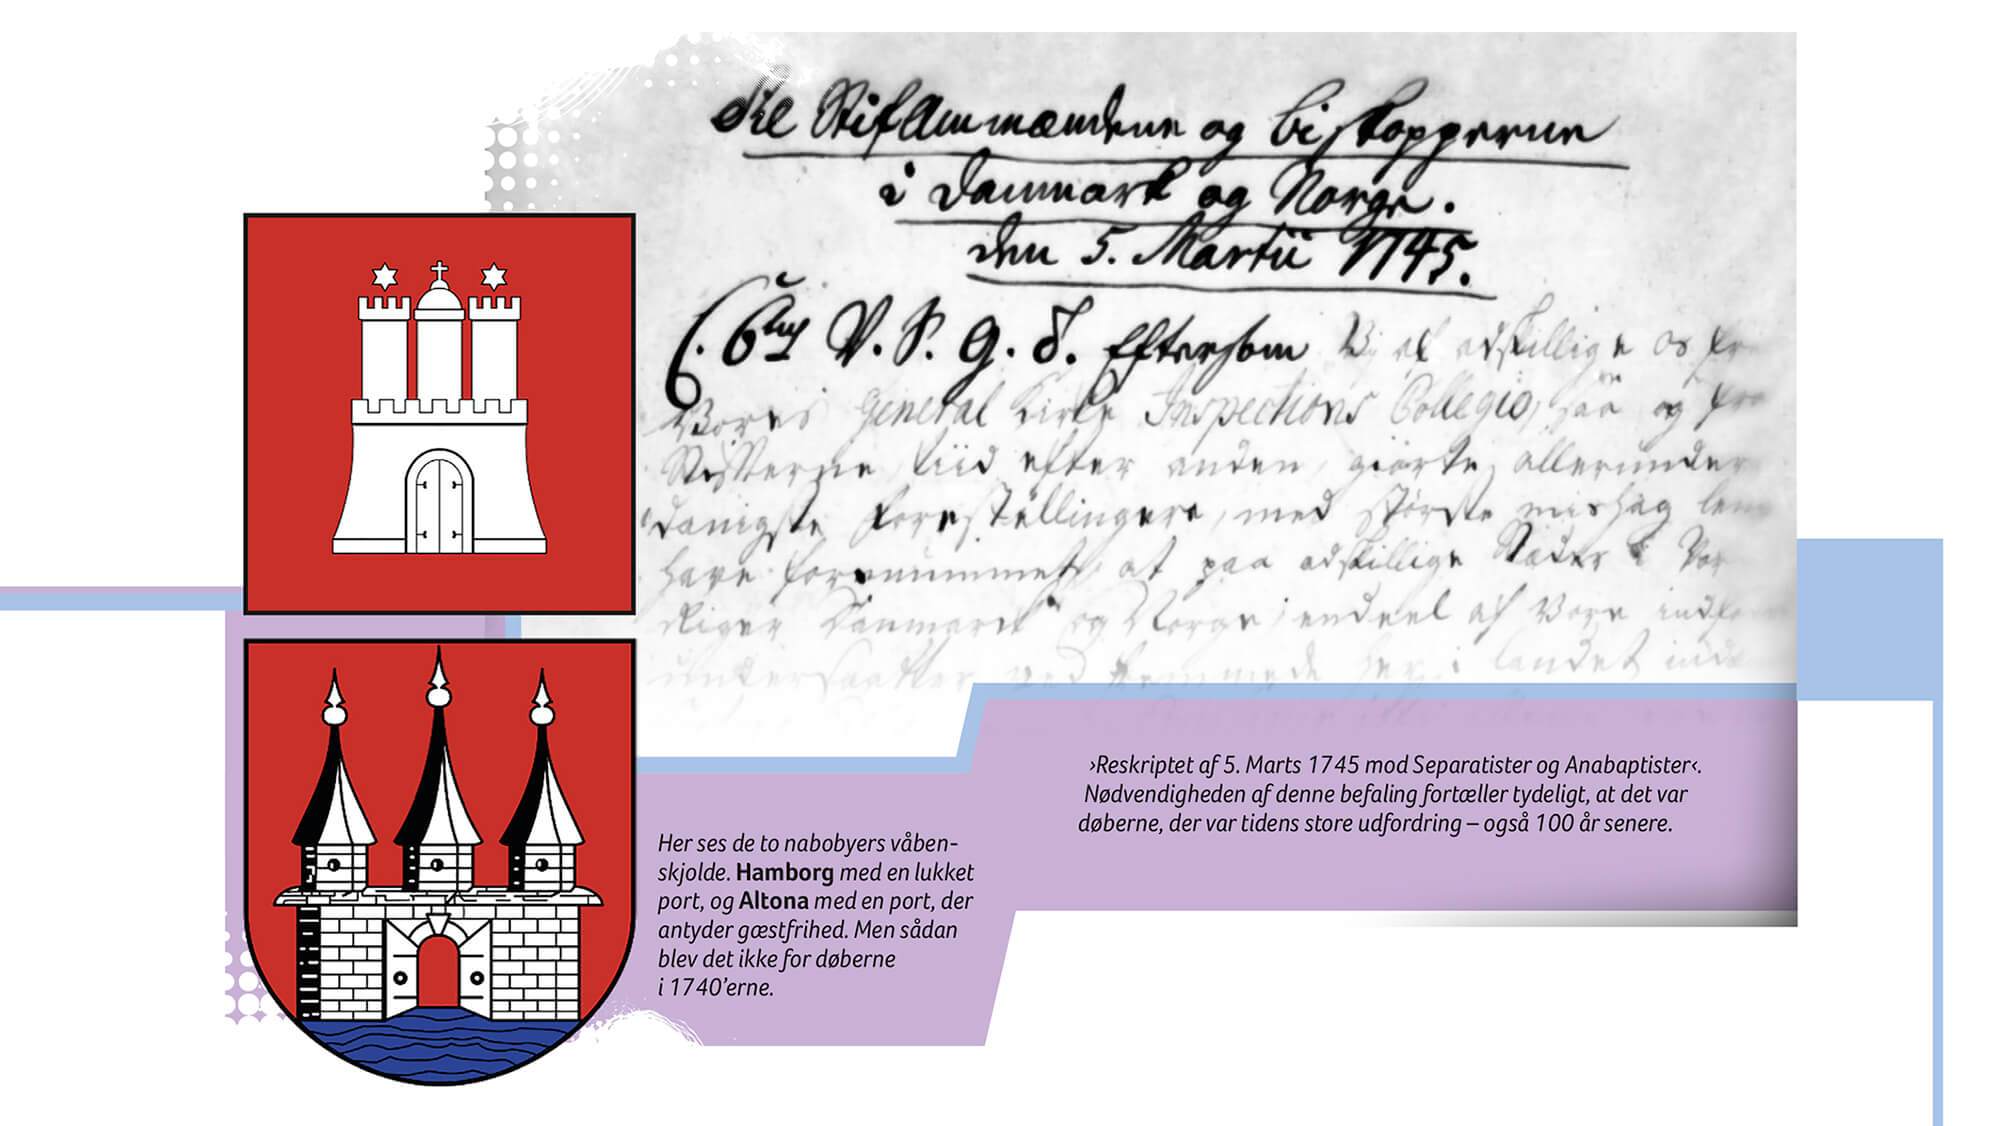 Til Stiftammændene og biskopperne
i Danmark og Norge.
den 5. Martii 1745.
V. S. G. T. Eftersom Vj af adskillige os
Vores General Kirke Inspections Collegio, saa og
Stifterne, tiid efter anden, giorte, allerunder
danigste forestillinger, med største mishag
have fornummet, at paa adskillige Stæder i Vor
Riger Danmark og Norge, endeel af Vore
undersaatter ved fremmede her i landet
›Reskriptet af 5. Marts 1745 mod Separatister og Anabaptister‹.
Nødvendigheden af denne befaling fortæller tydeligt, at det var
døberne, der var tidens store udfordring – også 100 år senere.
Her ses de to nabobyers våben-
skjolde. Hamborg med en lukket
port, og Altona med en port, der
antyder gæstfrihed. Men sådan
blev det ikke for døberne
i 1740’erne.